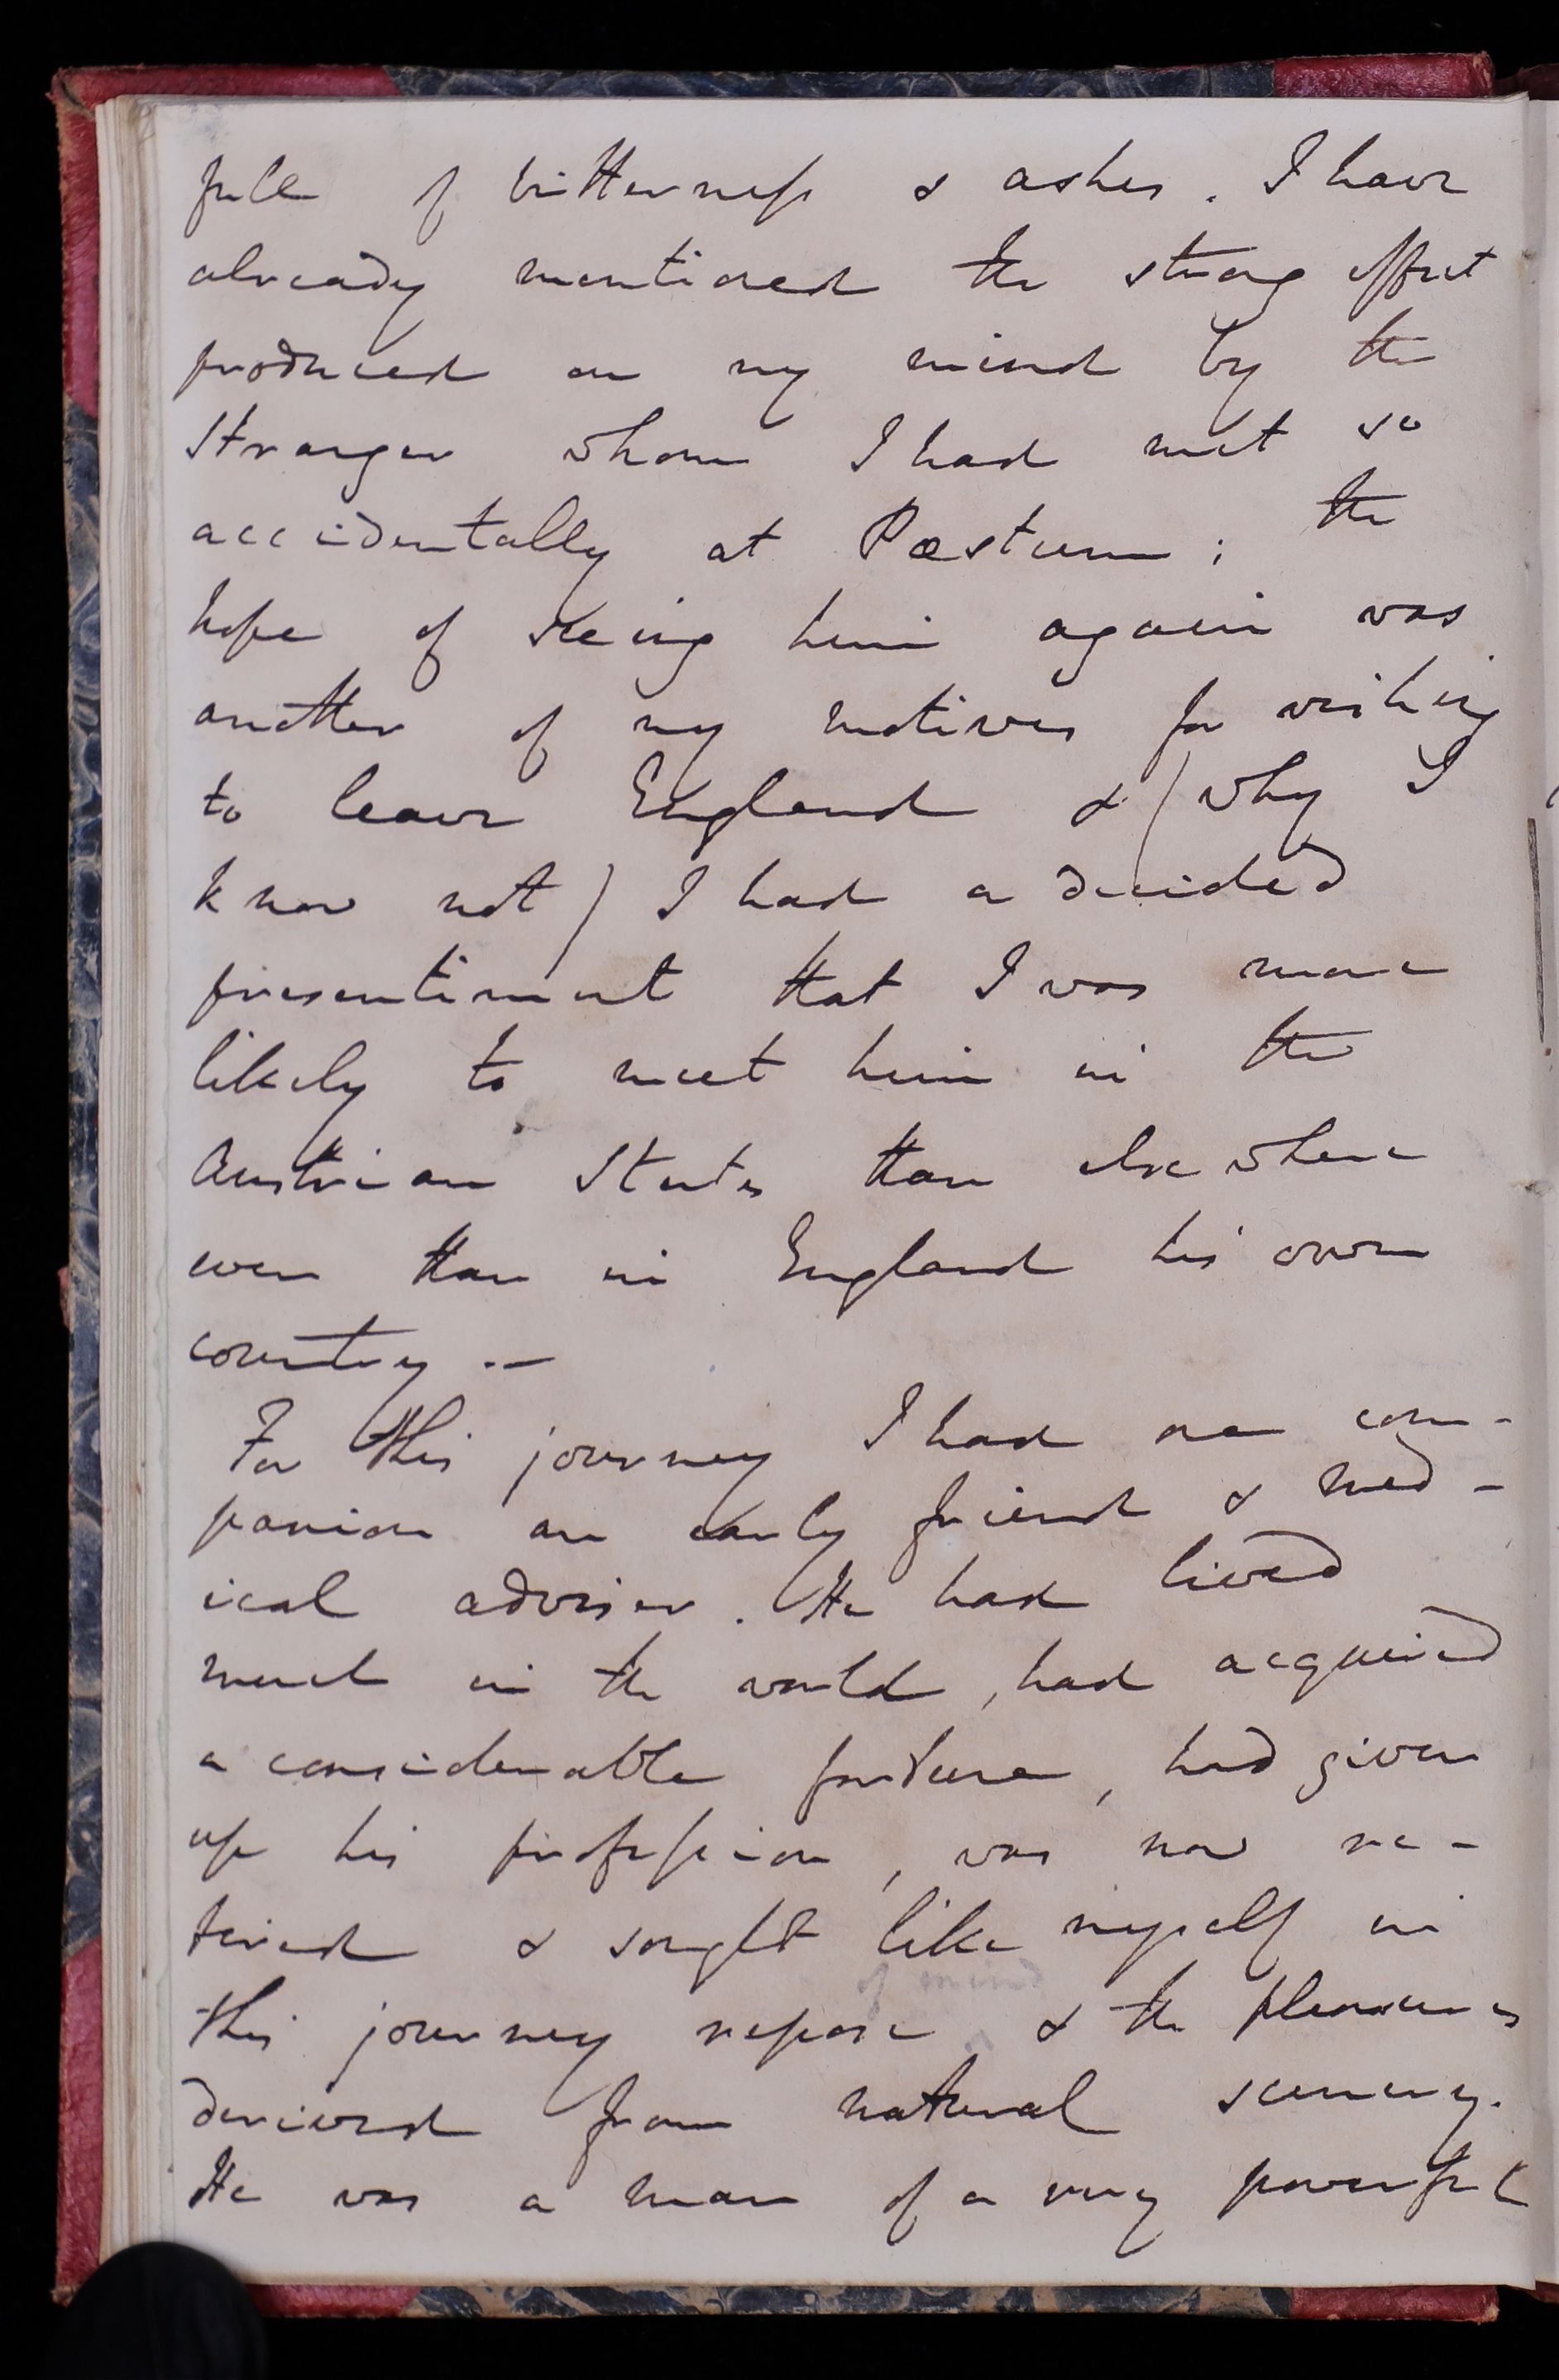 full of bitterness & ashes. I have
already mentioned the strong effect
produced on my mind by the
Stranger whom I had met so
accidentally at Pæstum; the
hope of seeing him again was
another of my motives for wishing
to leave England & (why I
know not) I had a decided
presentiment that I was more
likely to meet him in the
Austrian States than elsewhere
even than in England his own
country. —
For this journey I had one com-
panion an early friend & med-
ical adviser. He had lived
much in the world, had acquired
a considerable fortune, had given
up his profession, was now re-
tired & sought like myself in
of mind
this journey repose & the pleasures
derived from natural scenery.
He was a man of a very powerful